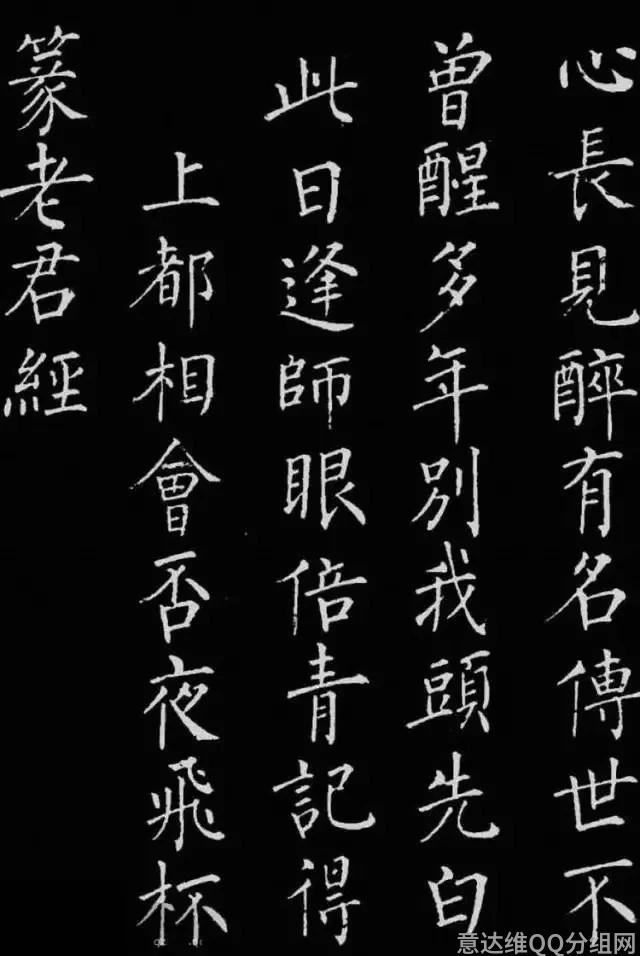 心長見醉有名傳世不
曾醒多年別我頭先白
此日逢師眼倍青記得
上都相會否夜飛杯
篆老君經
意达维QQ分组网